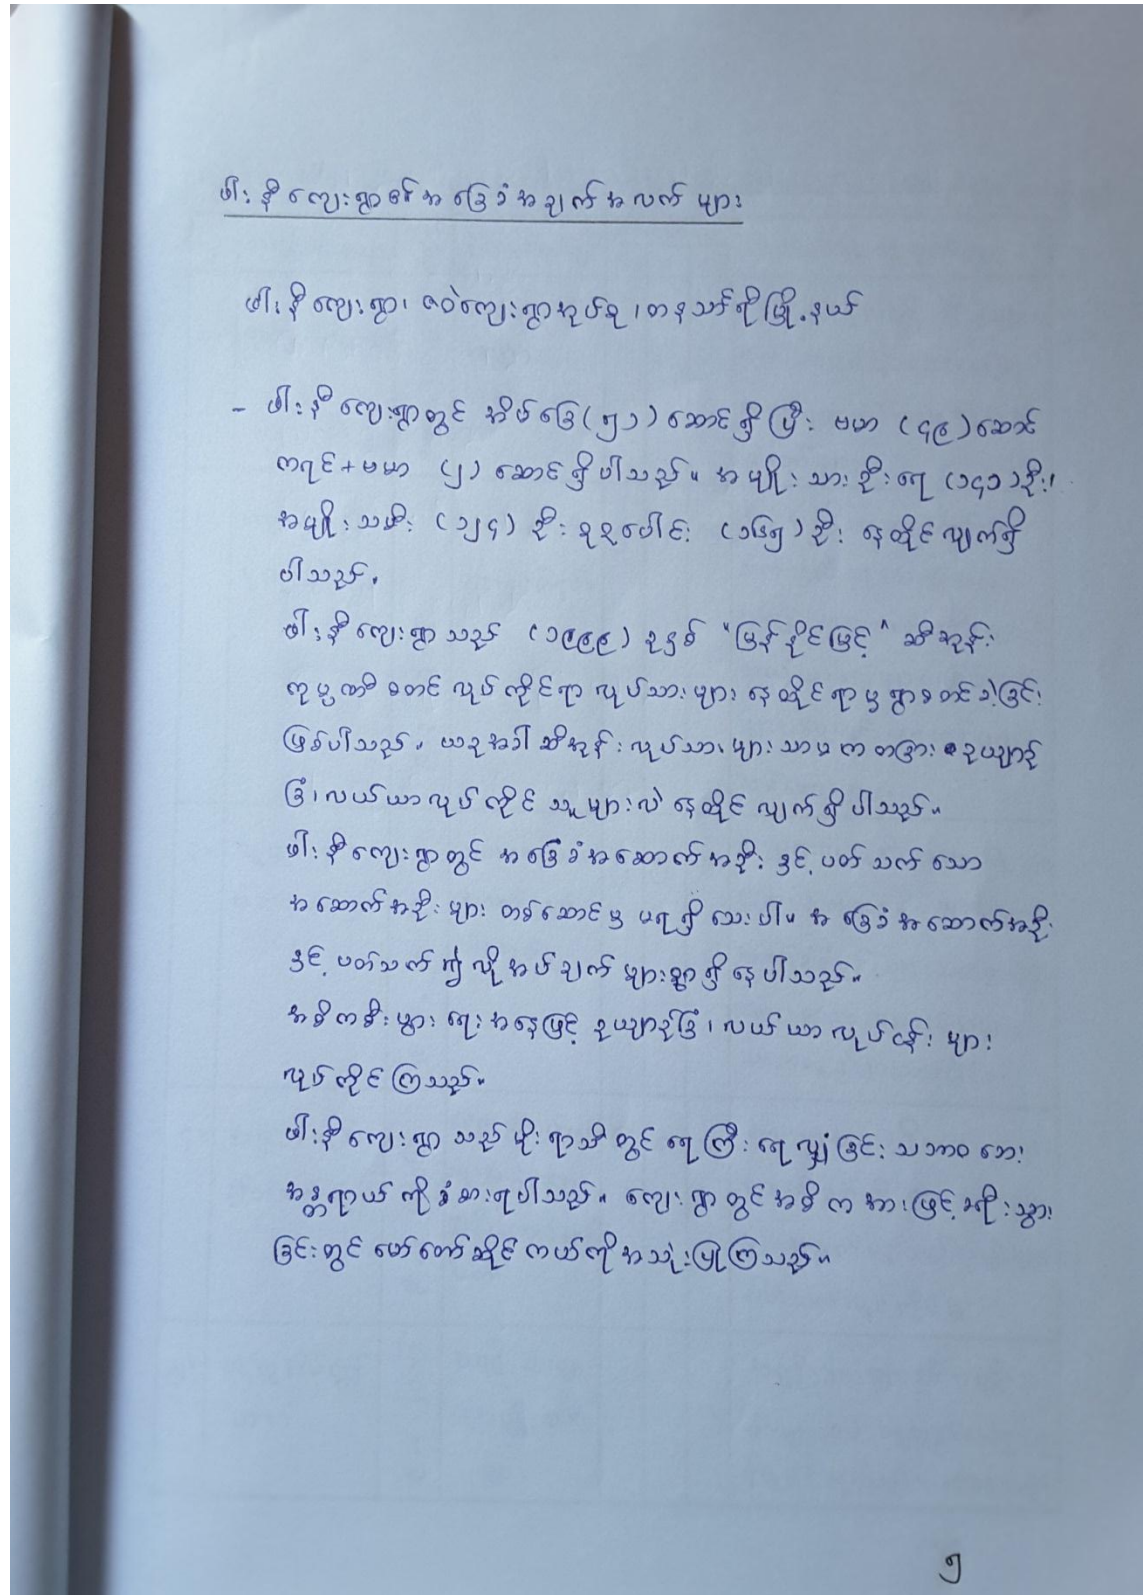 ဖါးနီကျေးရွာ၏အခြေခံအချက်အလက်များ
ဖါးနီကျေးရွာ၊ ဇဝဲကျေးရွာအုပ်စု၊ တနင်္သာရီမြို့နယ်
- ဖါးနီကျေးရွာတွင် အိမ်ခြေ(၅၁)ဆောင်ရှိပြီး ဗမာ (၄၉)ဆောင်
ကရင်+ဗမာ (၂) ဆောင်ရှိပါသည်။ အမျိုးသားဦးရေ (၁၄၁)ဦး၊
အမျိုးသမီး (၁၂၄) ဦး စုစုပေါင်း ဦး နေထိုင်လျက်ရှိ
ပါသည်။
ဖါးနီကျေးရွာသည် (၁၉၉၉) ခုနှစ် "မြန်နိုင်မြင့်" ဆီအုန်း
ကုမ္ပဏီ စတင်လုပ်ကိုင်ရာ လုပ်သားများ နေထိုင်ရာမှ ရွာစတင်ခဲ့ခြင်း
ဖြစ်ပါသည်။ ယခုအခါ ဆီအုန်းလုပ်သားများသာမက တခြား ဥယျာဉ်
ခြံ၊ လယ်ယာလုပ်ကိုင်သူများလဲ နေထိုင်လျက်ရှိပါသည်။
ဖါးနီကျေးရွာတွင် အခြေခံအဆောက်အဦး နှင့်ပတ်သက်သော
အဆောက်အဦးများ တစ်ဆောင်မှ မရရှိသေးပါ။ အခြေခံအဆောက်အဦး
နှင့်ပတ်သက်၍ လိုအပ်ချက်များစွာရှိနေပါသည်။
အဓိကစီးပွားရေးအနေဖြင့် ဥယျာဉ်ခြံ၊ လယ်ယာလုပ်ငန်းများ
လုပ်ကိုင်ကြသည်။
ဖါးနီကျေးရွာသည် မိုးရာသီတွင် ရေကြီးရေလျှံခြင်း သဘာဝဘေး
အန္တရာယ်ကို ခံစားရပါသည်။ ကျေးရွာတွင် အဓိကအားဖြင့် ခရီးသွား
ခြင်းတွင် မော်တော်ဆိုင်ကယ်ကိုအသုံးပြုကြသည်။
၅